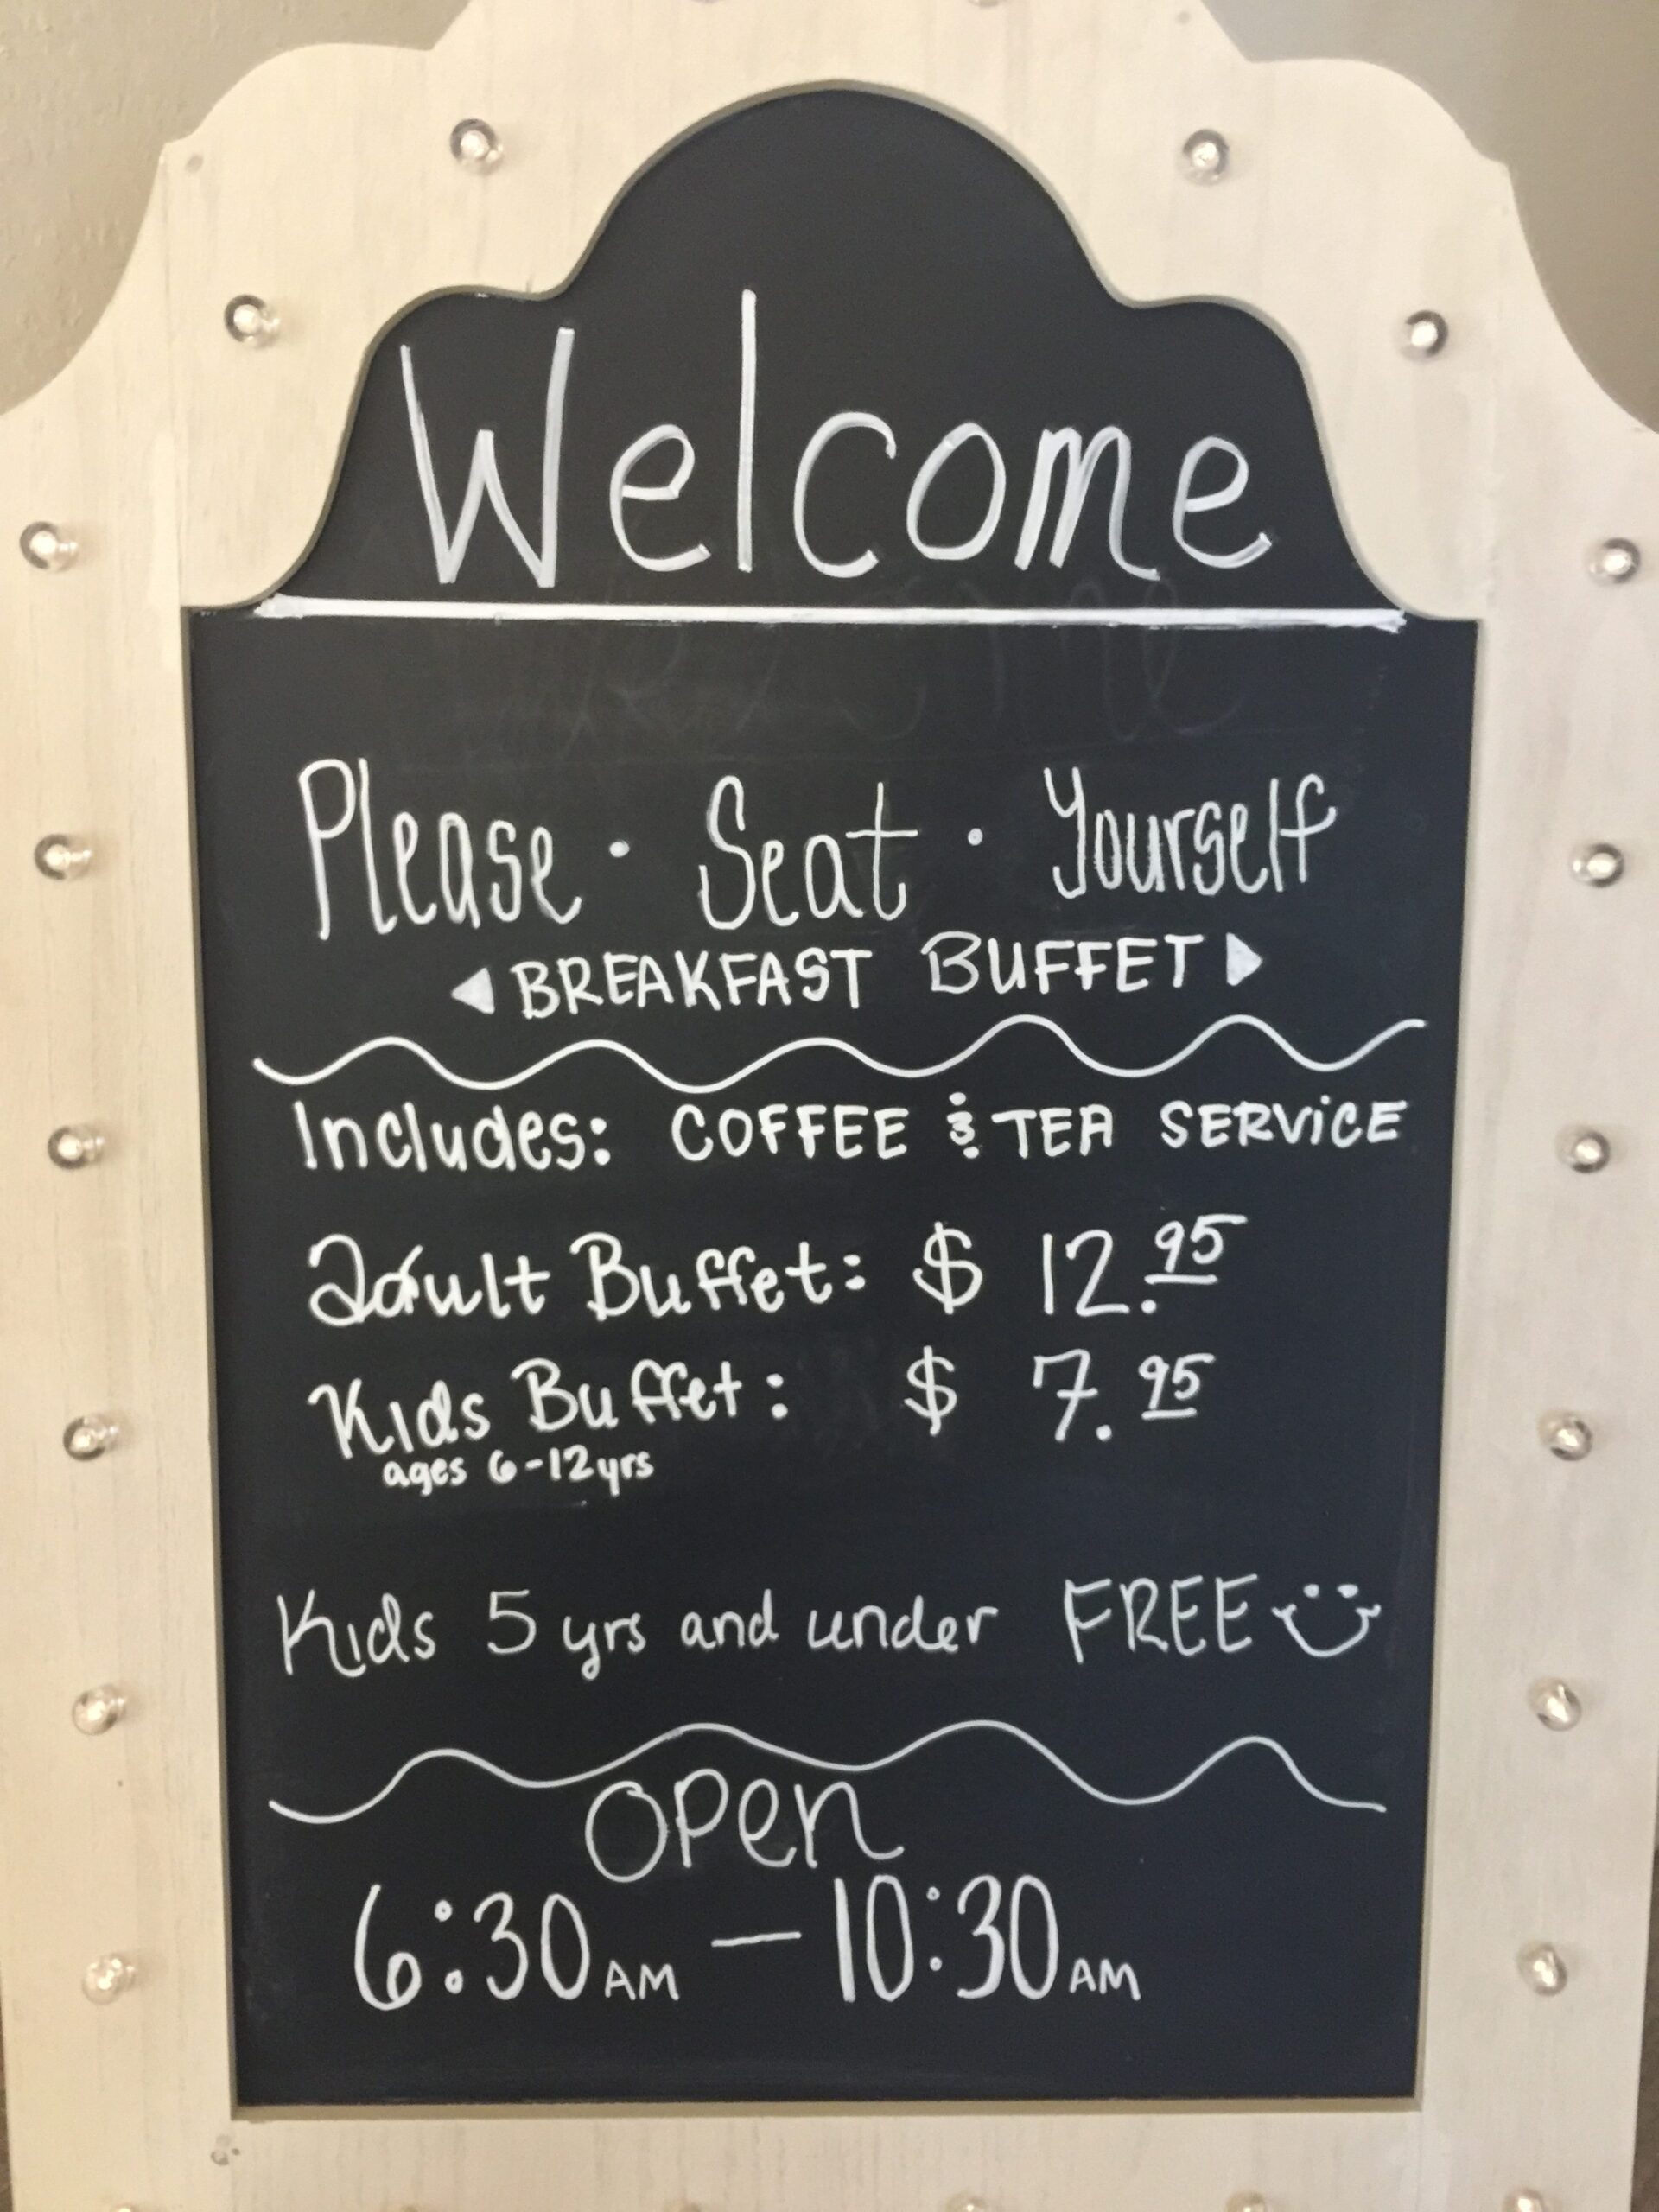 Welcome
Please · Seat · Yourself
BREAKFAST BUFFET
Includes: COFFEE & TEA SERVICE
Adult Buffet: $ 12.95
Kids Buffet: $ 7.95
ages 6-12yrs
Kids 5 yrs and under FREE
OPen
6:30AM — 10:30AM